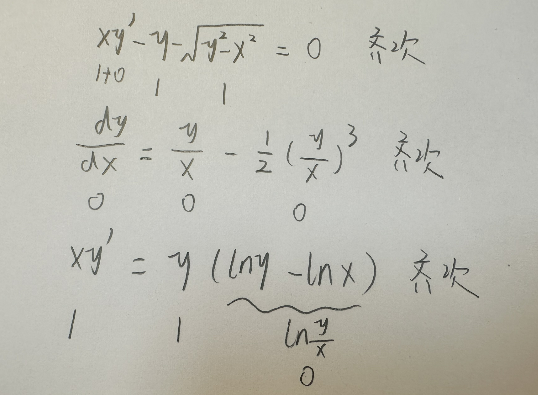 xy′ - y - √(y² - x²) = 0 齐次
1+0 1 1
dy/dx = y/x - 1/2 (y/x)³ 齐次
0 0 0
xy′ = y (lny - lnx) 齐次
1 1 ln y/x
0